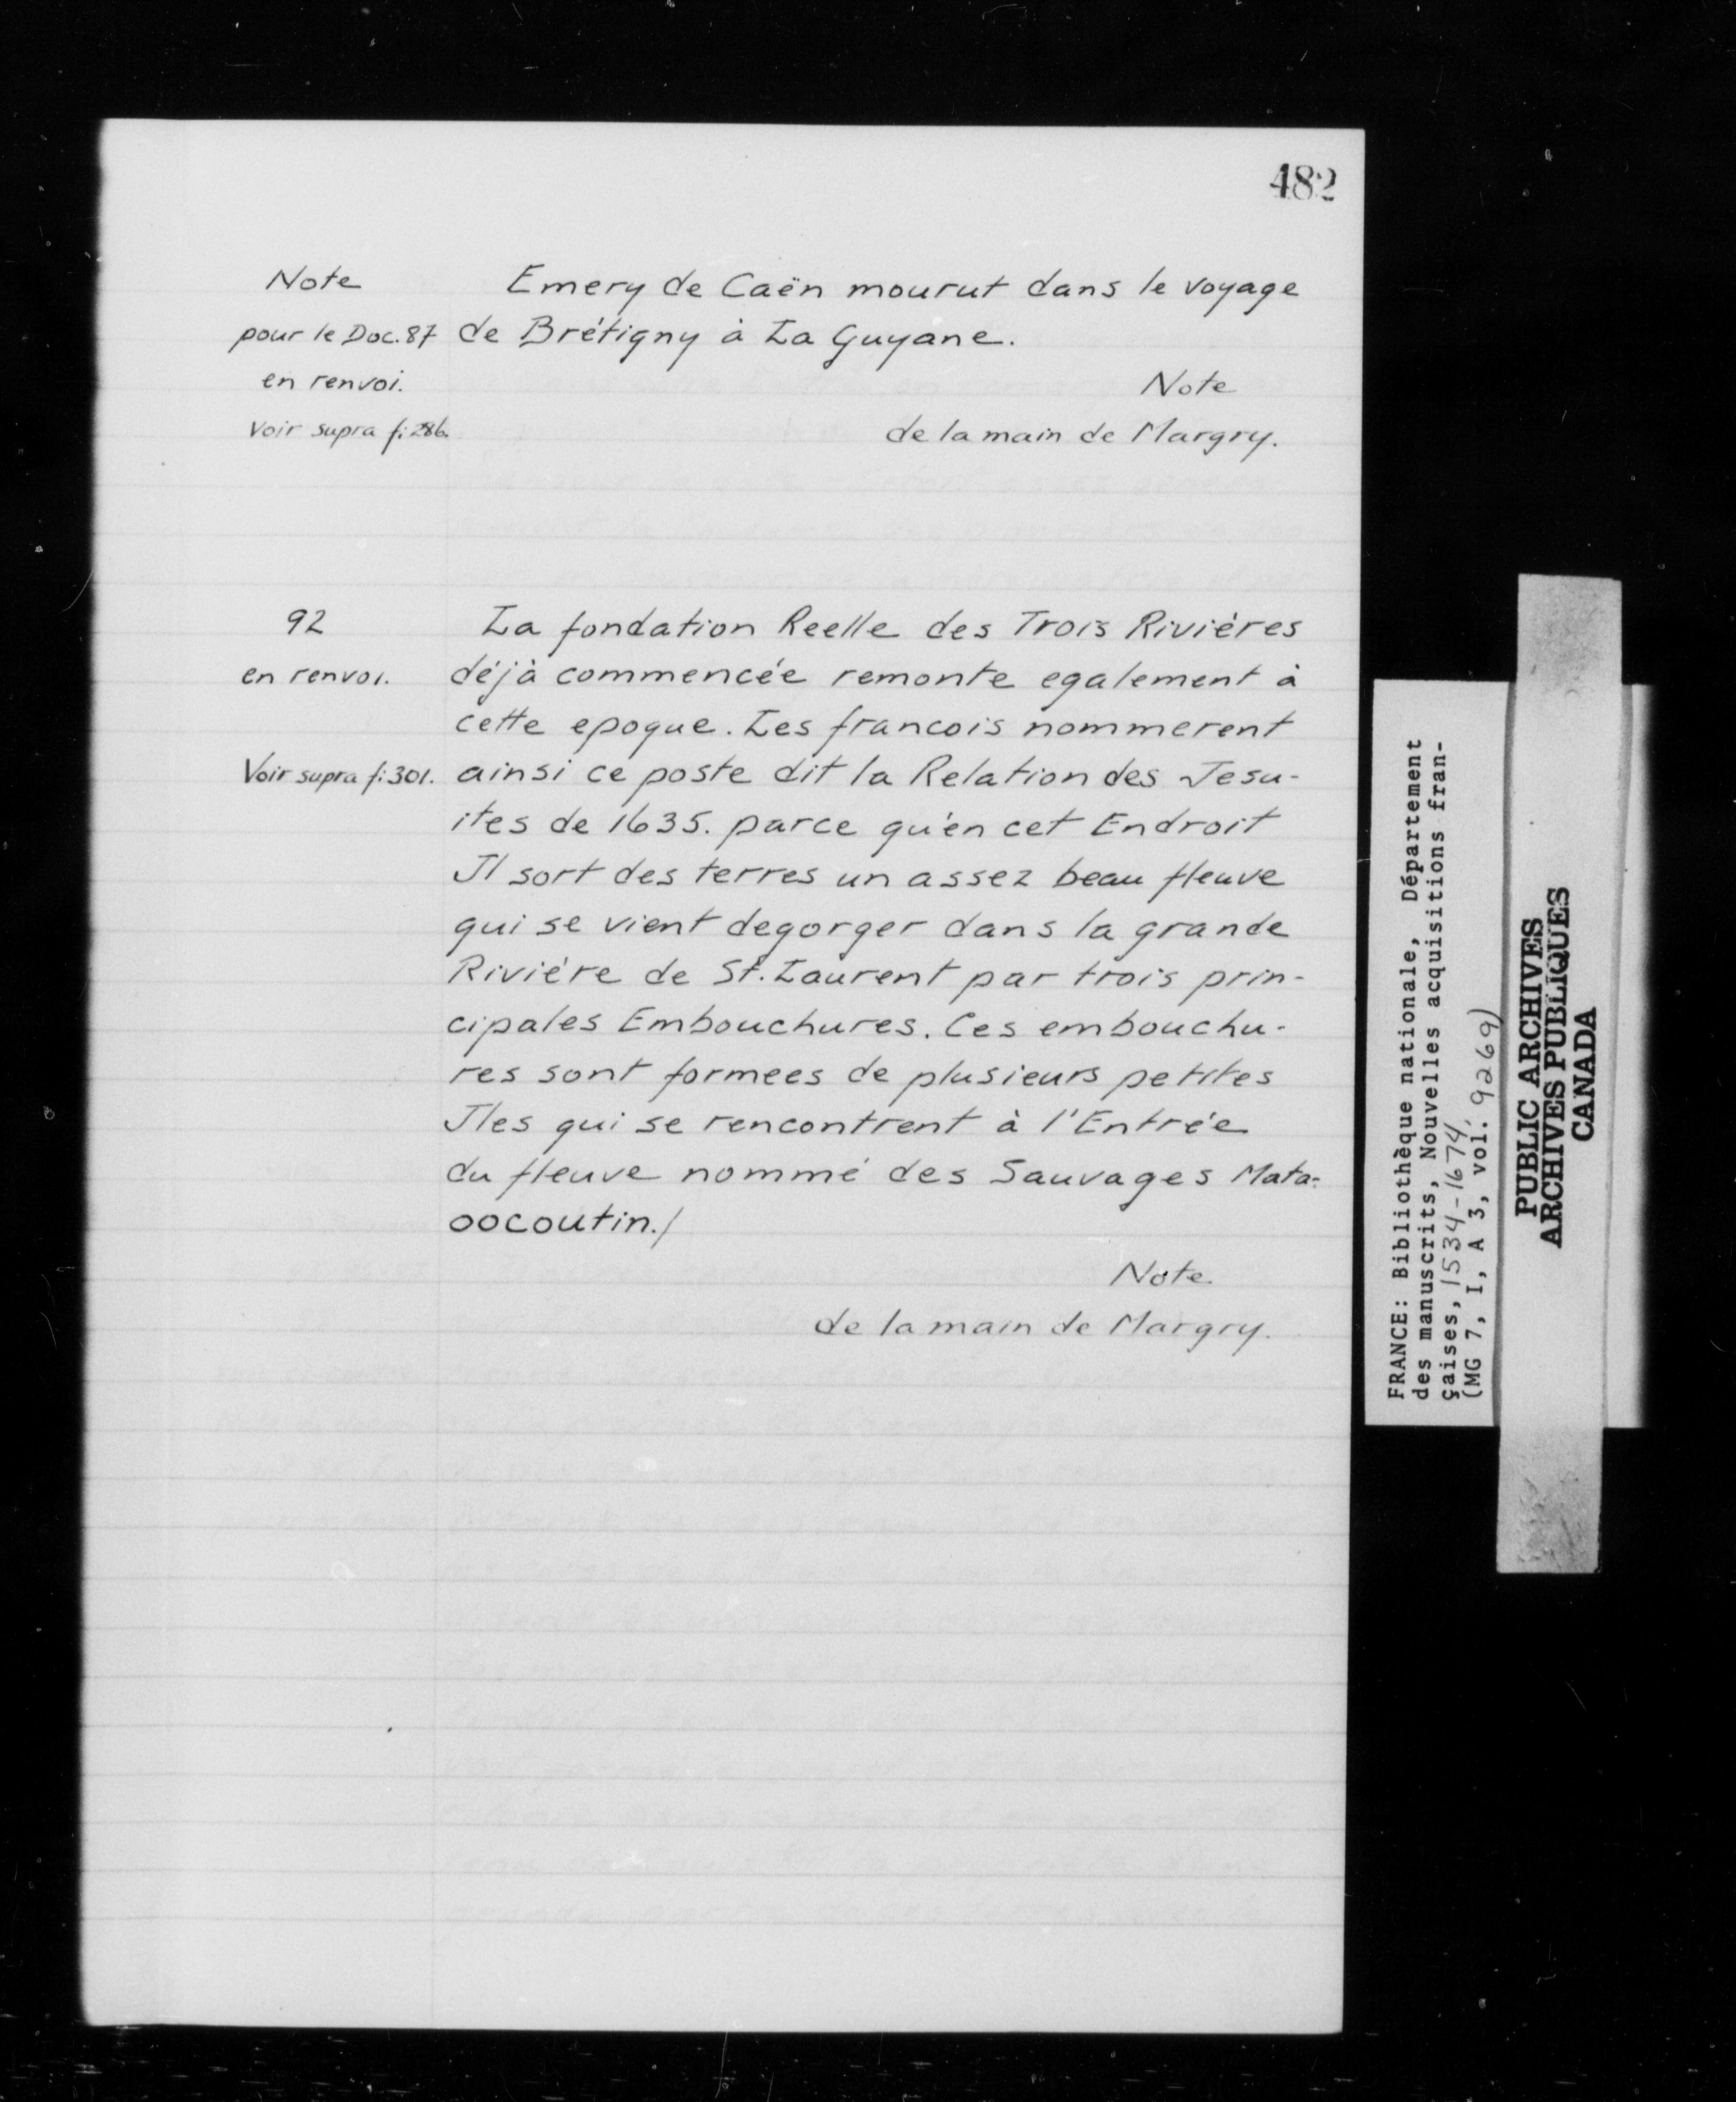 482
Note
pour le Doc. 87
en renvoi.
Voir supra f: 286.
Emery de Caën mourut dans le voyage
de Brétigny à La Guyane.
Note
de la main de Margry.
92
en renvoi.
Voir supra f: 301.
La fondation Reelle des Trois Riviéres
déjà commencée remonte egalement à
cette epoque. Les francois nommerent
ainsi ce poste dit la Relation des Jesu-
ites de 1635. parce qu'en cet Endroit
Il sort des terres un assez beau fleuve
qui se vient degorger dans la grande
Riviére de St. Laurent par trois prin-
cipales Embouchures. Ces embouchu-
res sont formees de plusieurs petites
Iles qui se rencontrent à l'Entrée
du fleuve nommé des Sauvages Mata-
oocoutin./
Note
de la main de Margry.
FRANCE: Bibliothèque nationale, Département
des manuscrits, Nouvelles acquisitions fran-
çaises, 1534-1674,
(MG 7, I, A 3, vol. 9269)
PUBLIC ARCHIVES
ARCHIVES PUBLIQUES
CANADA